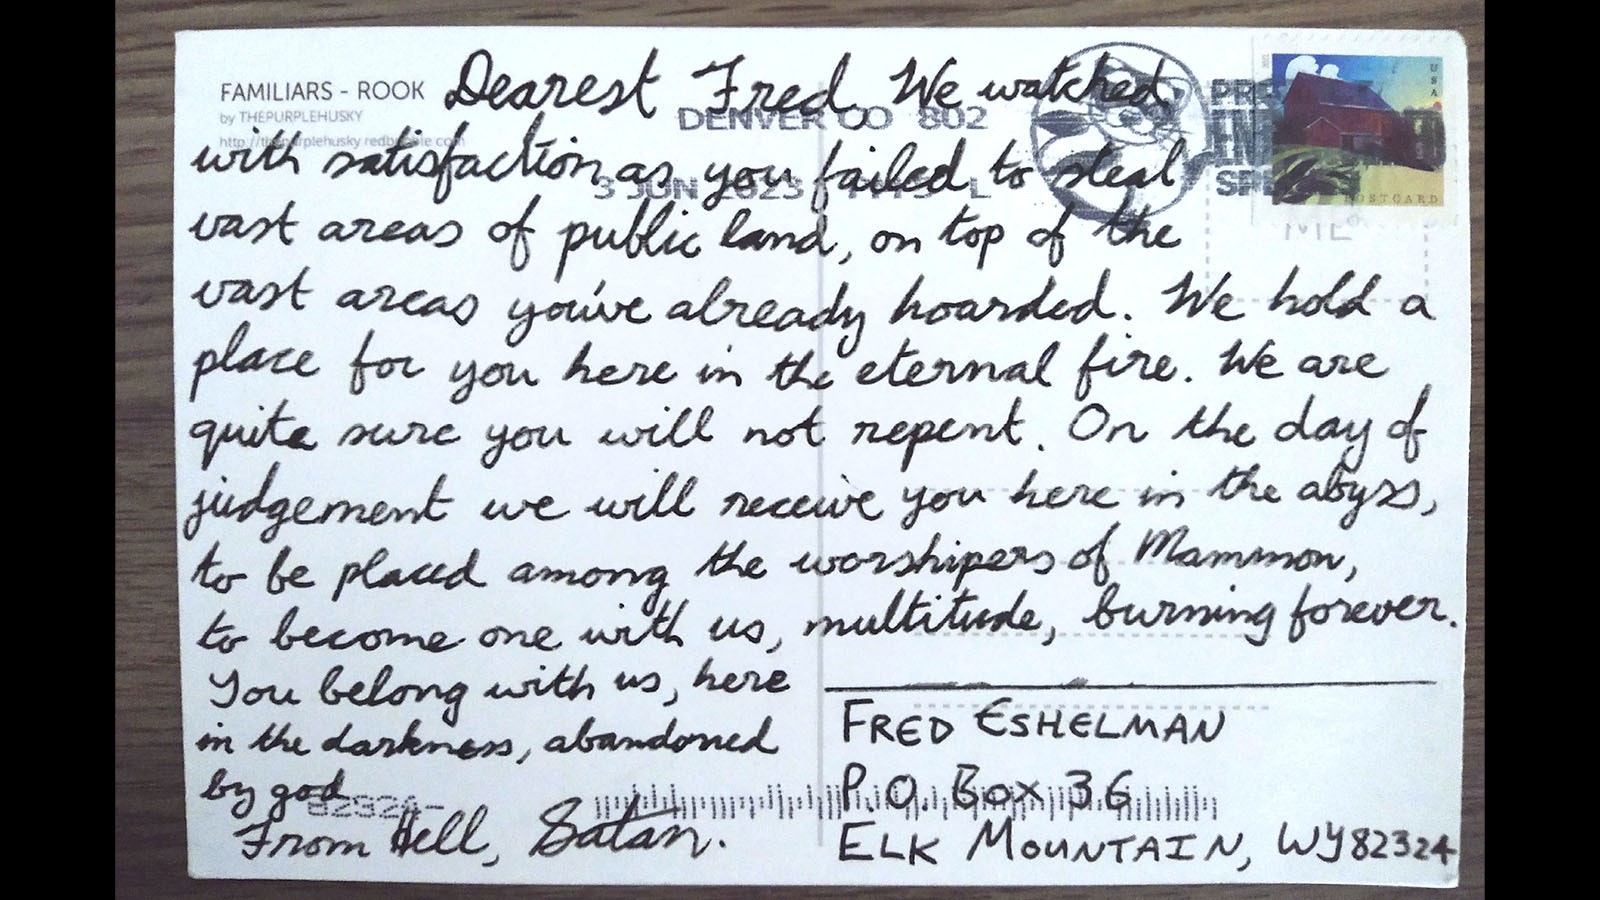 FAMILIARS - ROOK
by THEPURPLEHUSKY
http://thepurplehusky.redbubble.com
DENVER CO 802
3 JUN 2023
USA
POSTCARD
Dearest Fred, We watched
with satisfaction as you failed to steal
vast areas of public land, on top of the
vast areas you've already hoarded. We hold a
place for you here in the eternal fire. We are
quite sure you will not repent. On the day of
judgement we will receive you here in the abyss,
to be placed among the worshipers of Mammon,
to become one with us, multitude, burning forever.
You belong with us, here
in the darkness, abandoned
by god
From Hell, Satan.
FRED ESHELMAN
P.O. BOX 36
ELK MOUNTAIN, WY 82324
82324-